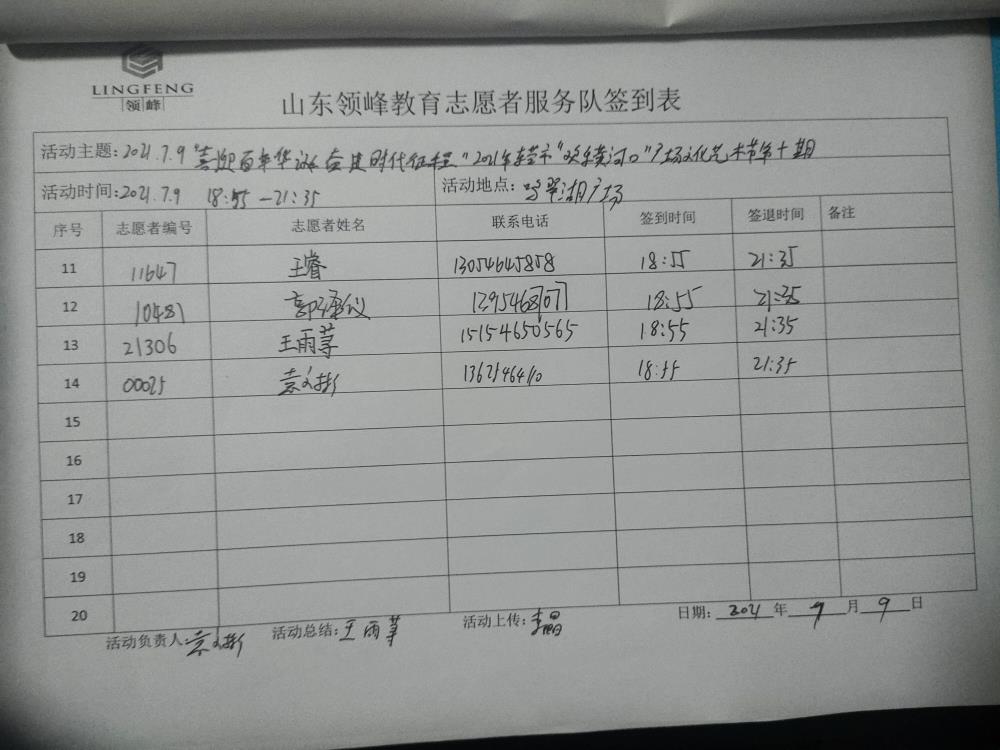 LINGFENG
领峰
山东领峰教育志愿者服务队签到表
活动主题:2021.7.9"喜迎百年华诞 奋进时代征程"2021年东营市"欢乐黄河口"广场文化艺术节第十期
活动时间:2021.7.9 18:55-21:35 活动地点:鸣翠湖广场
序号 志愿者编号 志愿者姓名 联系电话 签到时间 签退时间 备注
11 11647 王睿 13054645858 18:55 21:35
12 10487 18:55 21:35
13 21306 王雨荨 15154650565 18:55 21:35
14 00025 袁文彬 18:55 21:35
15
16
17
18
19
20
活动负责人:袁文彬 活动总结:王雨荨 活动上传:李晶 日期: 2021 年 7 月 9 日